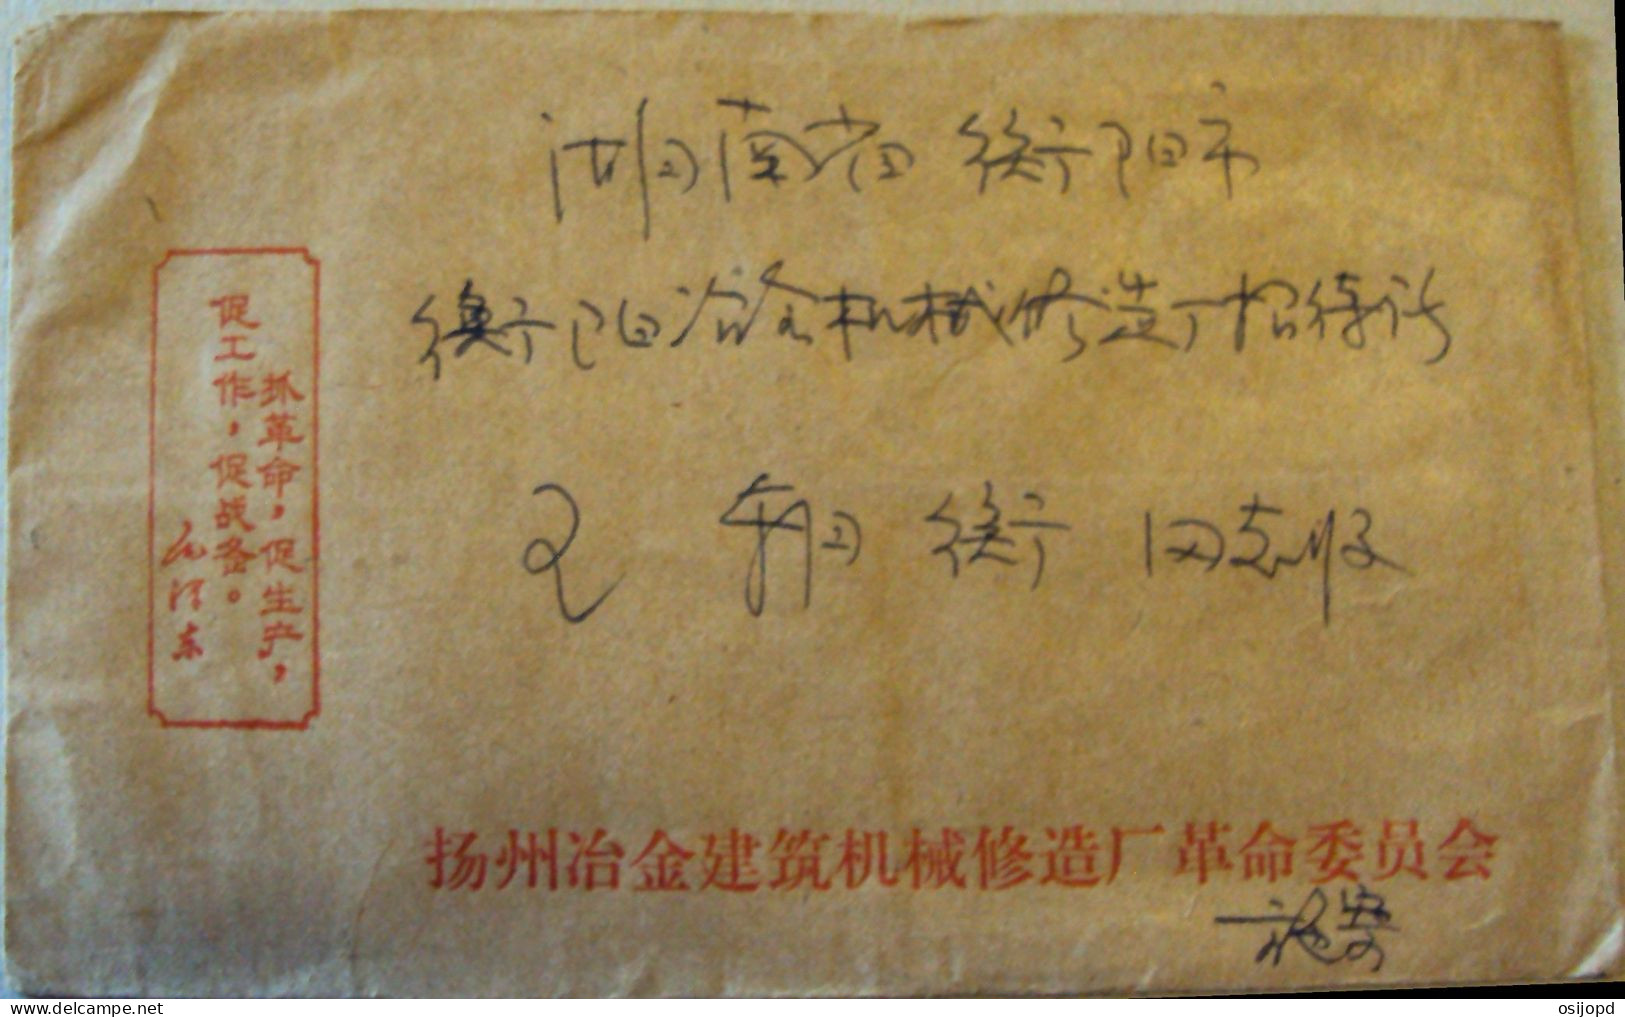 湖南省衡阳市
衡阳冶金机械修造厂招待所
王 朝衡 同志收
抓革命，促生产，
促工作，促战备。
毛泽东
扬州冶金建筑机械修造厂革命委员会
delcampe.net
osijopd